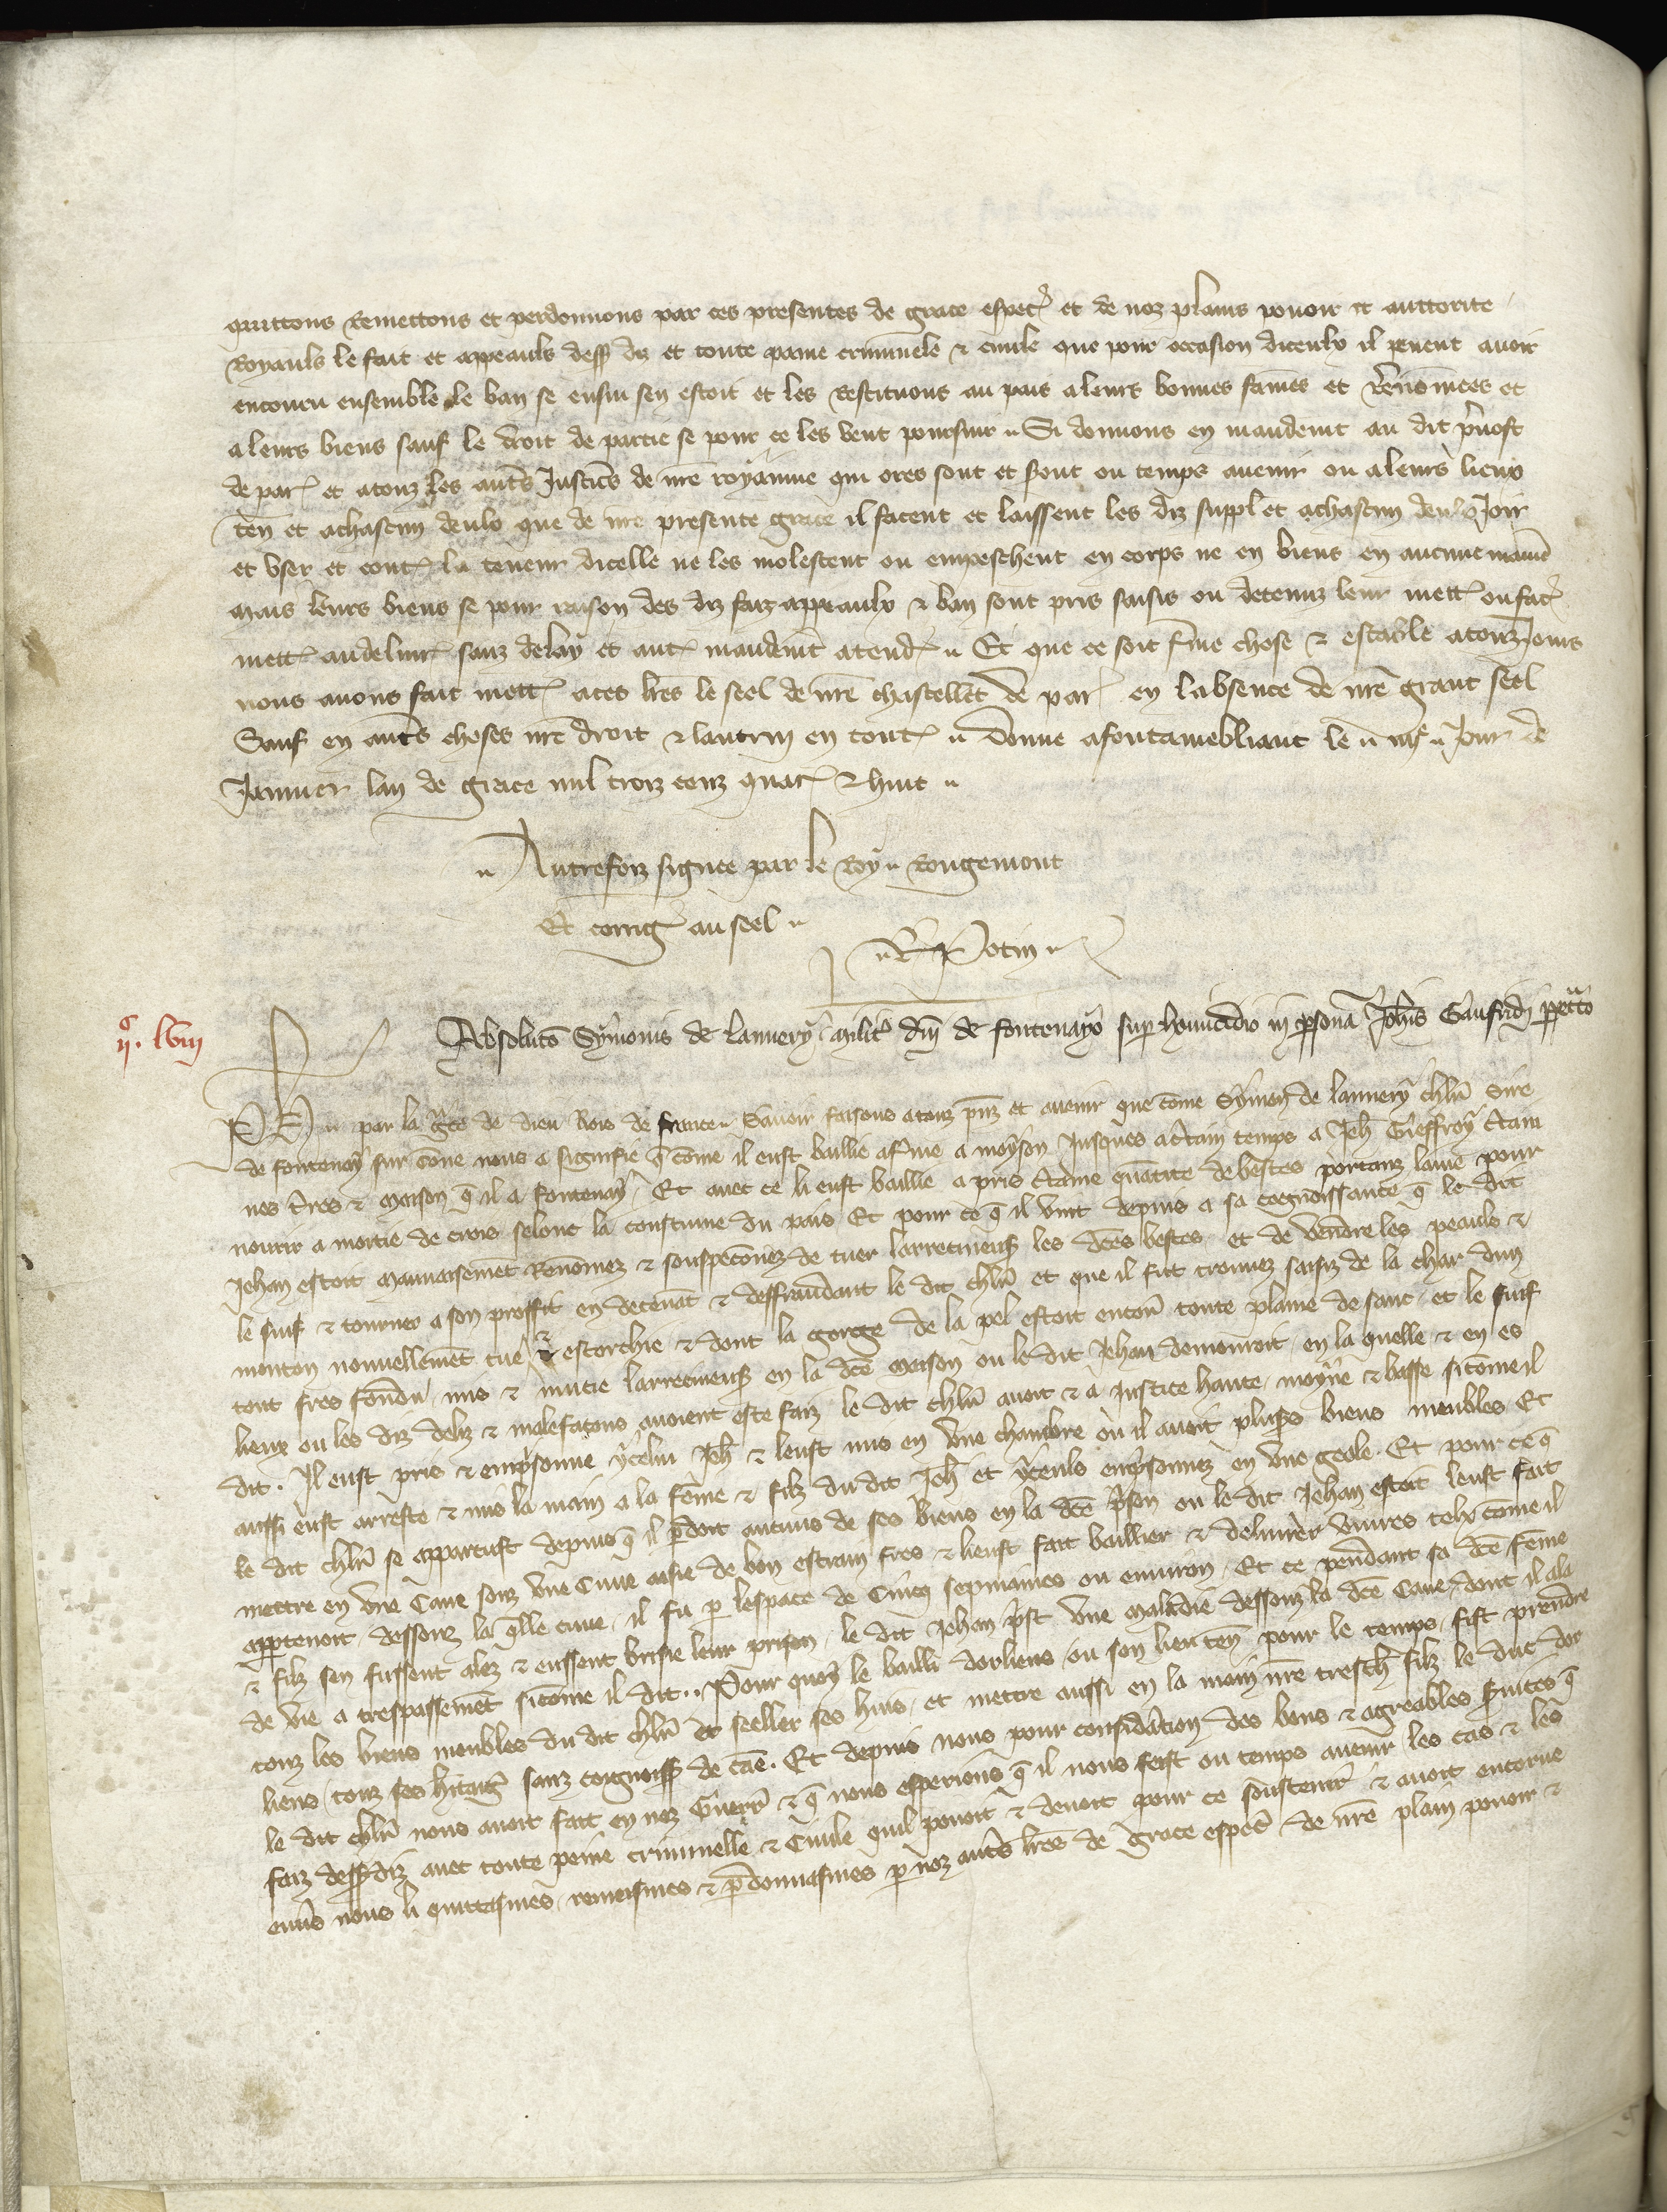 quittons remettons et perdonnons par ces presentes de grace esp̄ec et de noz plains pouoir et auctorite
Royauls le fait et appeauls dess diz et toute paine criminele & ciuile que pour occasion diceulx il peuent auoir
encouru ensemble le ban se ensui sen estoit et les restituons au pais a leurs bonnes fames et renōmees et
a leurs biens sauf le droit de partie se pour ce les veut poursuir Si donnons en mandemt au dit p̄uost
de par et atouz les aut̄s Justic̄s de nr̄e royaume qui ores sont et s̄ont ou temps auenir ou a leurs lieux
ten̄ et achascun deulx que de nr̄e presente grace il facent et laissent les diz suppl et achascun deulx Joir
et vser et cont̄ la teneur dicelle ne les molestent ou empeschent en corps ne en biens en aucune manie
mais leurs biens se pour raison des diz faiz appeaulx & ban sont pris saisis ou detenuz leur mett̄ ou fac̄
mett̄ au deliur̄ sanz delay et aut̄ mandemt atend̄ Et que ce soit f̄me chose & estable atouzJours
nous auons fait mett̄ aces lr̄es le seel de nr̄e chastellet de par en labsence de nr̄e grant seel
Sauf en aut̄s choses nr̄e droit & lautruy en tout̄ Donne afontainebliaut le iiiie Jour de
Januier lan de grace mil troiz cenz quar̄ & huit
Autrefoiz signee par le Roy Rougemont
Et corriḡ au seel
R Potin
iic. lviii
Absoluto Symonis de Lannery milit̄ dn̄i de fontenayo sup̄ homicidio in p̄sona Joh̄is Gaufridi pp̄etrato
Ph̄ par la gr̄ce de dieu Rois de france Sauoir faisons atouz p̄nz et auenir que cōme Symon de lannery chlr̄ Sire
de fontenay sur cōne nous a signifie q̄ cōme il eust baillie af̄me a moyson Jusques ac̄tain temps a Jeh̄ Gieffroy c̄tai
nes t̄res & maison q̄ il a fontenay Et auec ce li eust baillie a pris c̄taine quātite de bestes portanz laine pour
nourir a moitie de crois selonc la coustume du pais Et pour ce q̄ il vint depuis a sa cognoissance q̄ le dit
Jehan estoit mauuaisemēt renōmez & souspeconez de tuer larrecineus̄ les dc̄es bestes et de vendre les peauls &
le suif & tourner a son proffit en deceuāt & deffraudant le dit chlr̄ et que il fut trouuez saisiz de la char dun
mouton nouuellemēt tue & escorchie & dont la gorge de la pel estoit encor̄ toute plaine de sanc et le suif
tout fres fōndu mis & mucie larrecineus̄ en la dc̄e maison ou le dit Jehan demouroit en la quelle & en es
lieux ou les diz deliz & malefacons auoient este faiz le dit chlr̄ auoit & a Justice haute moyēne & basse sicōme il
dit. Il eust pris & emp̄sonne ycelui Jeh̄ & leust mis en vne chambre ou il auoit plus̄s biens meubles Et
aussi eust arreste & mis la main a la fēme & filz du dit Jeh̄ et yceuls emp̄sonnez en vne geole. Et pour ce q̄
le dit chlr̄ se apparcust depuis q̄ il p̄doit aucuns de ses biens en la dc̄e p̄son ou le dit Jehan estoit leust fait
mettre en vne Caue souz vne Cuue assise de bon estrain fres & lieust fait baillier & deliurer viures telx cōme il
app̄tenoit dessouz la q̄lle cuue il fu p̄ lespace de Cinq sepmaines ou enuiron Et ce pendant sa dc̄e fēme
& filz sen fussent alez & eussent brisie leur prison le dit Jehan p̄st vne maladie dessouz la dc̄e Caue dont il ala
de vie a trespassemēt sicōme il dit Pour quoy le bailli dorliens ou son lieuten̄ pour le temps fist prendre
touz les biens meubles du dit chlr̄ & seeller ses huis et mettre aussi en la main nr̄e tresch̄ filz le duc dor
liens touz ses h̄itaḡ sanz cognoiss̄ de cāe. Et depuis nous pour consid̄ation des bons & agreables s̄uices q̄
le dit chlr̄ nous auoit fait en noz Guerr̄ & q̄ nous esperions q̄ il nous feist ou temps auenir les cas & les
faiz dess̄diz auec toute peine criminelle & Ciuile quil pouoit & deuoit pour ce soustenir & auoit encorue
enūs nous li quittasmes remeismes & p̄donnasmes p̄ noz aut̄s lr̄es de grace esp̄ec de nr̄e plain pouoir &